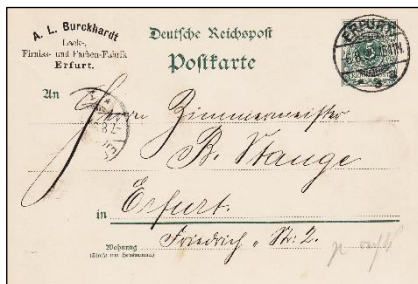 A. L. Burckhardt
Lack-,
Firniss- und Farben-Fabrik
Erfurt.
Deutsche Reichspost
Postkarte
ERFURT
5
An
Herrn Zimmermeister
B. Stange
in Erfurt.
Friedrich - Str: 2.
Wohnung
(Straße und Hausnummer)